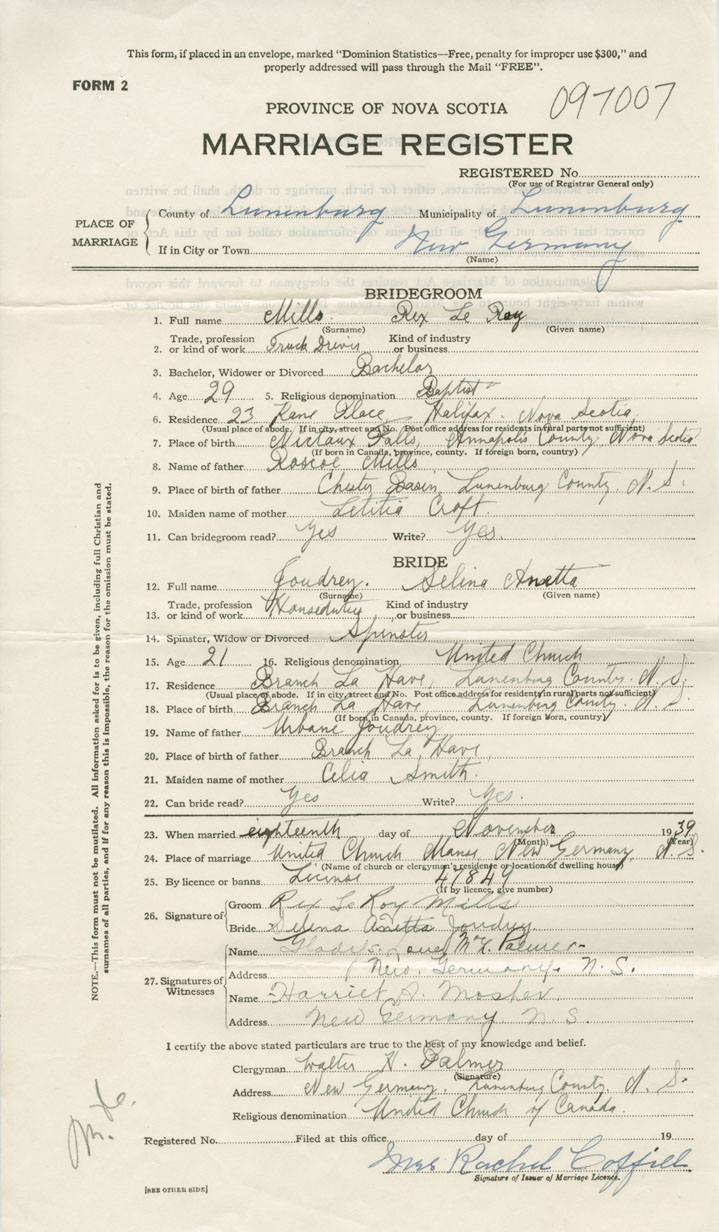 This form, if placed in an envelope, marked "Dominion Statistics—Free, penalty for improper use $300," and
properly addressed will pass through the Mail "FREE".
FORM 2
097007
PROVINCE OF NOVA SCOTIA
MARRIAGE REGISTER
REGISTERED No.
(For use of Registrar General only)
PLACE OF MARRIAGE
County of Lunenburg Municipality of Lunenburg
If in City or Town New Germany
(Name)
BRIDEGROOM
1. Full name Mills Rex Le Roy
(Surname) (Given name)
2. Trade, profession or kind of work Truck Driver Kind of industry or business
3. Bachelor, Widower or Divorced Bachelor
4. Age 29 5. Religious denomination Baptist
6. Residence 23 Kane Place, Halifax, Nova Scotia
(Usual place of abode. If in city, street and No. Post office address for residents in rural parts not sufficient)
7. Place of birth Nictaux Falls, Annapolis County, Nova Scotia
(If born in Canada, province, county. If foreign born, country)
8. Name of father Roscoe Mills
9. Place of birth of father Chester Basin, Lunenburg County, N.S.
10. Maiden name of mother Letitia Croft
11. Can bridegroom read? Yes Write? Yes.
BRIDE
12. Full name Joudrey. Selina Anetta
(Surname) (Given name)
13. Trade, profession or kind of work Houseduties Kind of industry or business
14. Spinster, Widow or Divorced Spinster
15. Age 21 16. Religious denomination United Church
17. Residence Branch La Have, Lunenburg County, N.S.
(Usual place of abode. If in city, street and No. Post office address for residents in rural parts not sufficient)
18. Place of birth Branch La Have, Lunenburg County, N.S.
(If born in Canada, province, county. If foreign born, country)
19. Name of father Urbane Joudrey
20. Place of birth of father Branch La Have,
21. Maiden name of mother Celia Smith.
22. Can bride read? Yes Write? Yes.
23. When married eighteenth day of November 1939
(Month) (Year)
24. Place of marriage United Church Manse, New Germany, N.S.
(Name of church or clergyman's residence or location of dwelling house)
25. By licence or banns License 41849
(If by licence, give number)
26. Signature of
Groom Rex LeRoy Mills
Bride Selina Anetta Joudrey.
27. Signatures of Witnesses
Name Gladys Palmer
Address New Germany. N.S.
Name Harriet A. Mosher
Address New Germany N.S.
I certify the above stated particulars are true to the best of my knowledge and belief.
Clergyman Walter H. Palmer
(Signature)
Address New Germany, Lunenburg County, N.S.
Religious denomination United Church of Canada.
Registered No. Filed at this office day of 19
Mrs Rachel Coffill
Signature of Issuer of Marriage Licence.
[SEE OTHER SIDE]
NOTE.—This form must not be mutilated. All information asked for is to be given, including full Christian and
surnames of all parties, and if for any reason this is impossible, the reason for the omission must be stated.